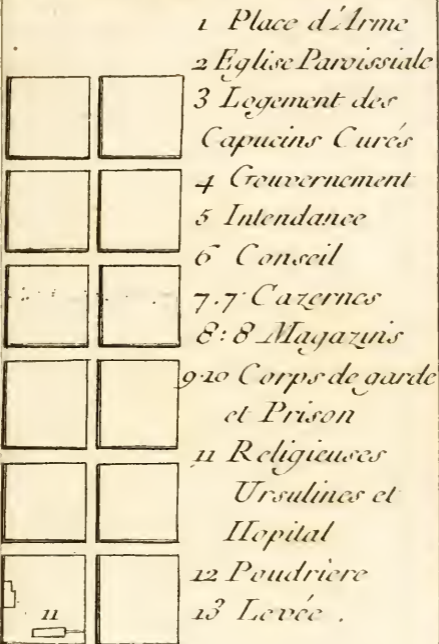 1 Place d'Arme
2 Eglise Paroissiale
3 Logement des
Capucins Curés
4 Gouvernement
5 Intendance
6 Conseil
7.7 Cazernes
8:8 Magazins
9.10 Corps de garde
et Prison
11 Religieuses
Ursulines et
Hopital
12 Poudriere
13 Levée .
11